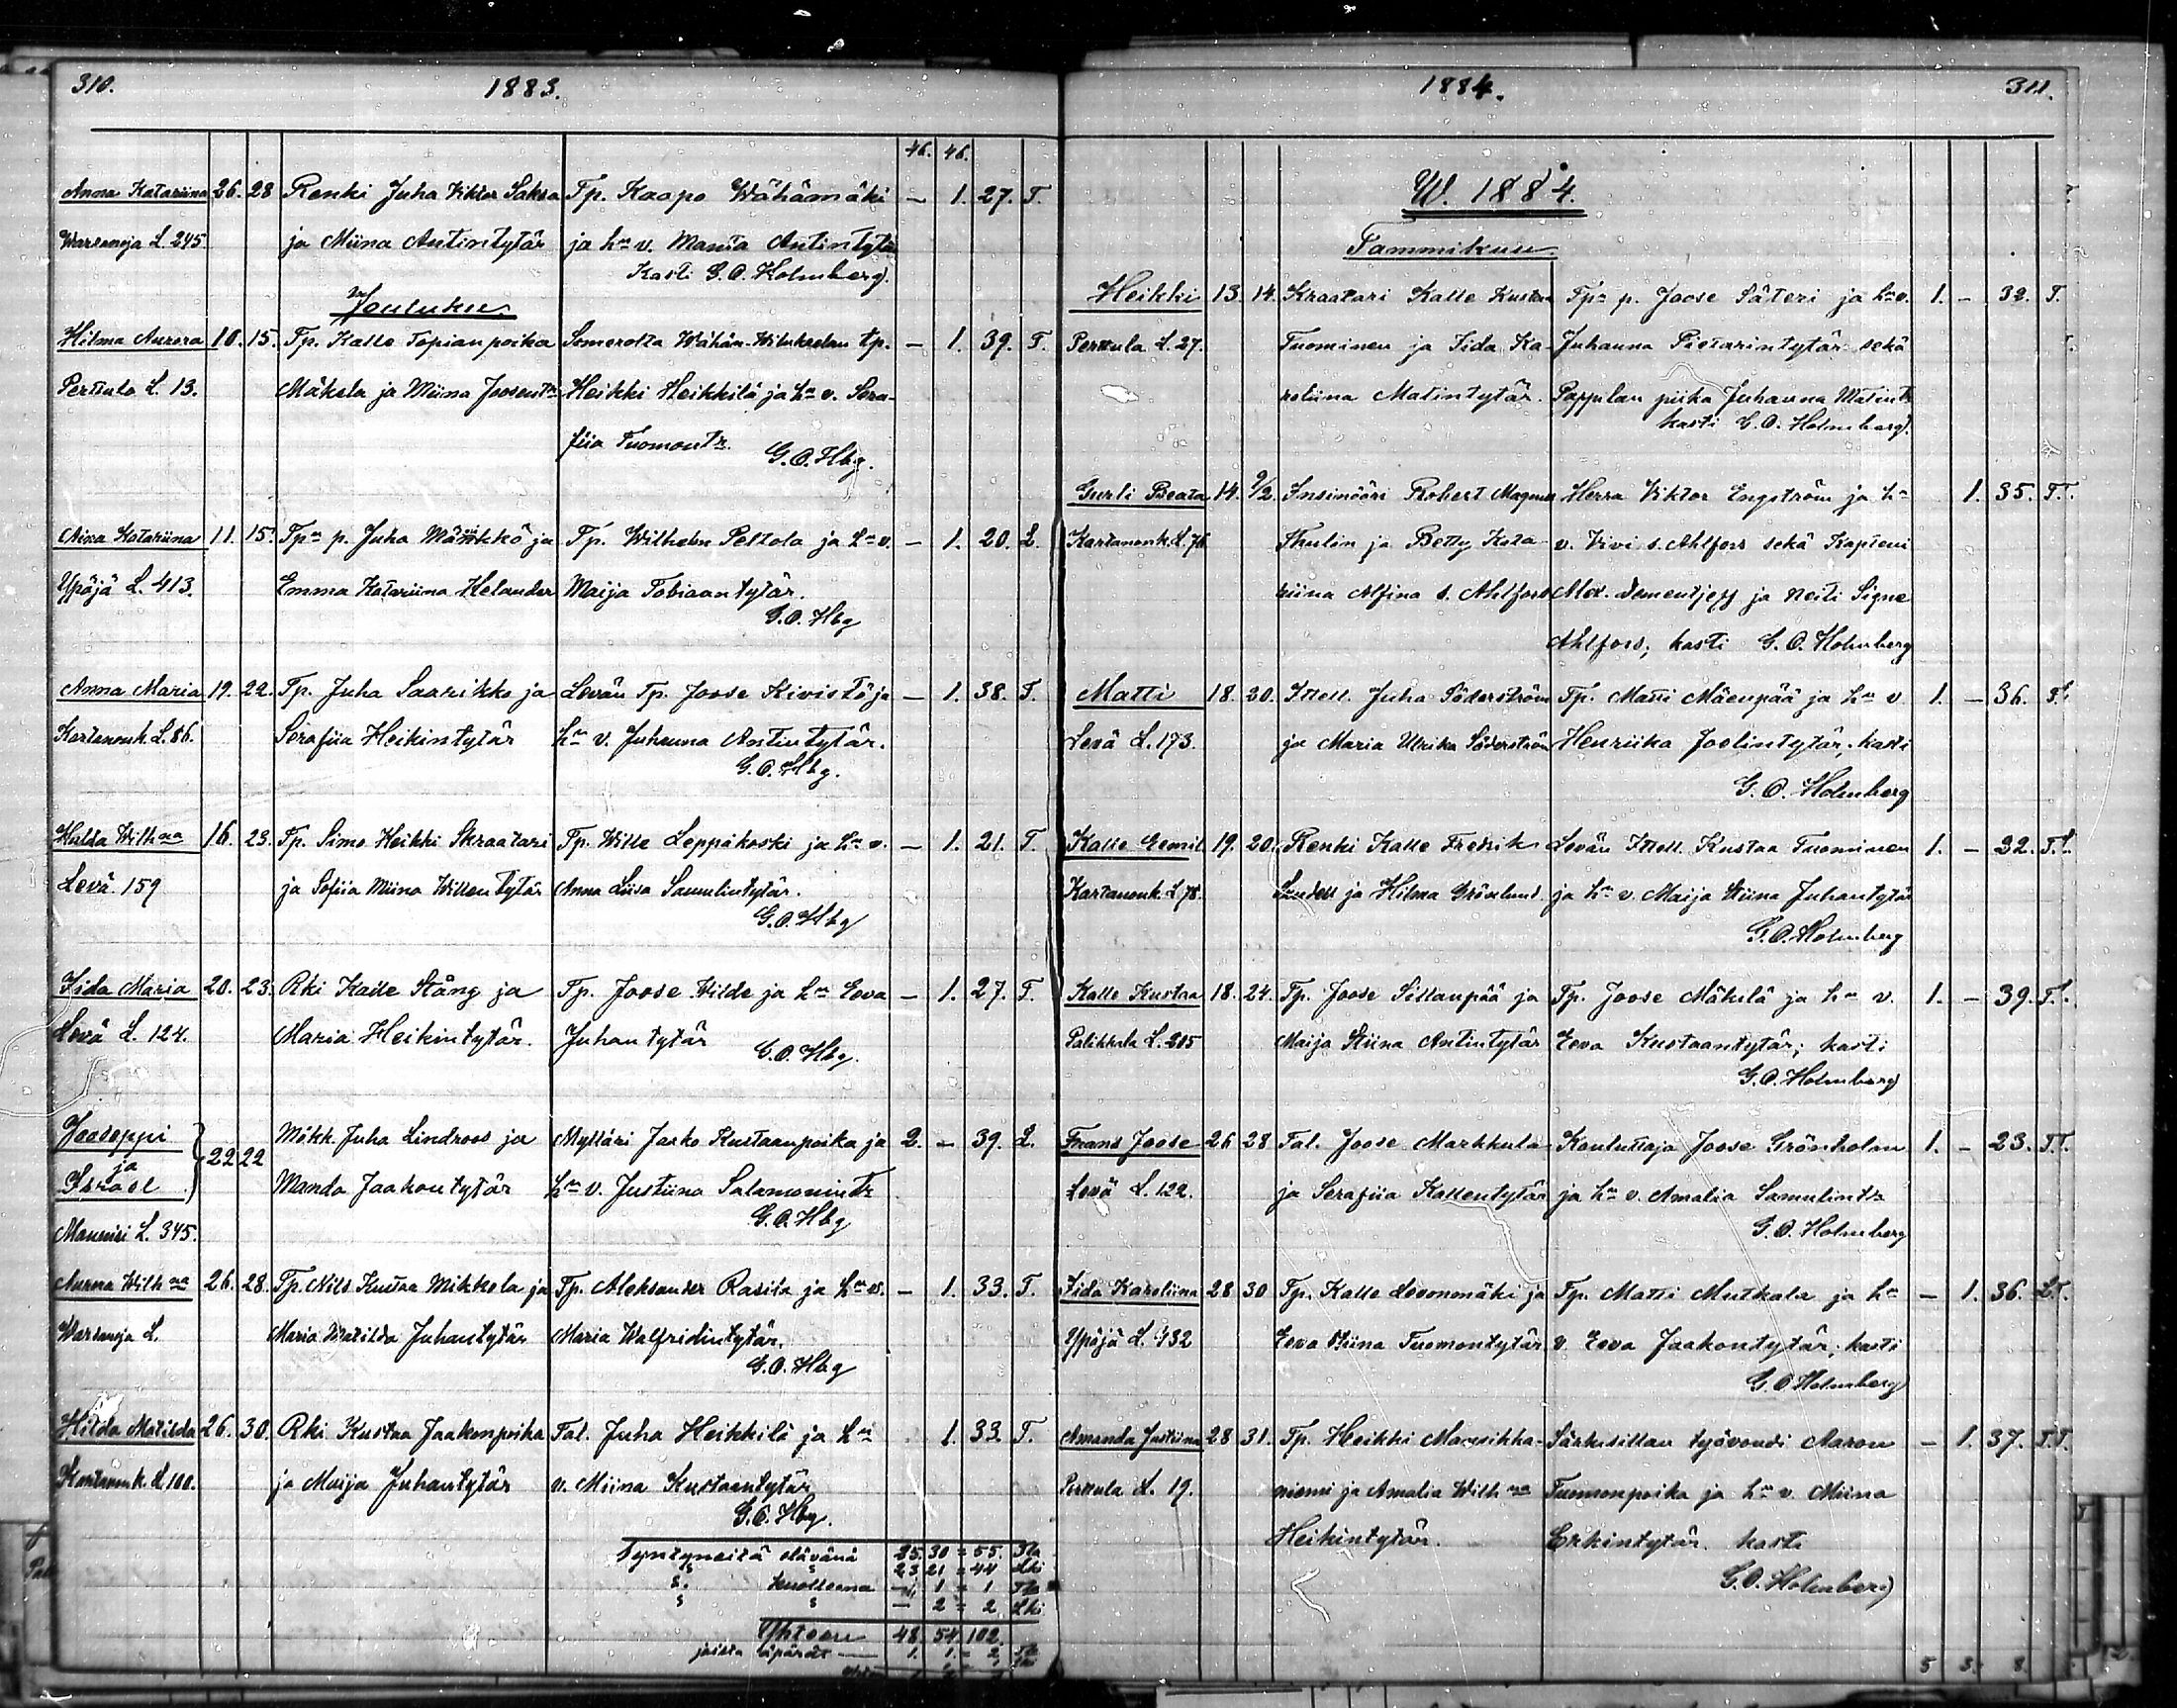 310. 1883.
46. 46.
Anna Katariina 26. 28 Renki Juha Viktor Saksa Tp. Kaapo Wähämäki — 1. 27. T.
L. 245 ja Miina Antintytär ja hn v. Manta Antintytär
Kasti G. O. Holmberg.
Joulukuu
Hilma Aurora 10. 15. Tp. Kalle Topianpoika Somerolta Wähän- tp. — 1. 39. T.
Perttula L. 13. Mäkela ja Miina Joosentr Heikki Heikkilä ja hn v. Sera-
fiia Tuomontr.
G. O. Hbg.
Aina Katariina 11. 15. Tpn p. Juha ja Tp. Wilhelm Peltola ja hn v. — 1. 20. L.
Ypäjä L. 413. Emma Katariina Helander Maija Tobiaantytär.
G. O. Hbg
Anna Maria 19. 22. Tp. Juha Saarikko ja Levän Tp. Joose Kivistö ja — 1. 38. T.
Kartanonk. L. 86. Serafiia Heikintytär hn v. Juhanna Antintytär.
G. O. Hbg.
Hulda Wilhna 16. 23. Tp. Simo Heikki Skraatari Tp. Wille Leppäkoski ja hn v. — 1. 21. T.
Levä. 159 ja Sofiia Miina Willentytär Anna Liisa Samulintytär.
G. O. Hbg
Iida Maria 20. 23. Rki Kalle Stång ja Tp. Joose Wilde ja hn Eeva — 1. 27. T.
Levä L. 124. Maria Heikintytär. Juhantytär
G. O. Hbg.
Jooseppi
ja 22 22 Mökk. Juha Lindroos ja Mylläri Jaako Kustaanpoika ja 2. — 39. L.
Israel Manda Jaakontytär hn v. Justiina Salamonintr
G. O. Hbg
Mannisi L. 345.
Wilhna 26. 28. Tp. Nils Kustaa Mikkola ja Tp. Aleksander Rasila ja hn v. — 1. 33. T.
L. Maria Matilda Juhantytär Maria Walfridintytär.
G. O. Hbg
Hilda Matilda 26. 30. Rki Kustaa Jaakonpoika Tal. Juha Heikkilä ja hn 1. 33. T.
Kartanonk. L 100. ja Maija Juhantytär v. Miina Kustaantytär
G. O. Hbg.
Syntyneitä elävänä 25. 30 = 55. Tla
23 21 = 44 Lki
kuolleena — 1 = 1 Tla
— 2 = 2 Lki
Yhteen 48. 54. 102.
joista äpäriä — 1. 1. = 2.
1884. 311.
W. 1884.
Tammikuu
Heikki 13. 14. Kraatari Kalle Kustaa Tpn p. Joose Säteri ja hn v. 1. — 32. T.
Perttula L. 27. Tuominen ja Iida Ka- Juhanna Pietarintytär sekä
roliina Matintytär. Pappilan piika Juhanna Matintr
kasti G. O. Holmberg.
Gurli Beata 14. 9/2. Insinööri Robert Magnus Herra Viktor Engström ja hn 1. 35. T.T.
Kartanonk. L. 76 Thulin ja Betty Kata- v. Vivi s. Ahlfors sekä Kapteni
riina Alfina s. Ahlfors Alex. Dementjeff ja neiti Signe
Ahlfors; kasti G. O. Holmberg
Matti 18. 20. Itsell. Juha Söderström Tp. Matti Mäenpää ja hn v. 1. — 36. T.L.
Levä L. 173. ja Maria Ulrika Söderström Henriika Joelintytär; kasti
G. O. Holmberg
Kalle Eemil 19. 20. Renki Kalle Fredrik Levän Itsell. Kustaa Tuominen 1. — 22. T.L.
Kartanonk. L 78. Lindell ja Hilma Grönlund. ja hn v. Maija Stiina Juhantytär
G. O. Holmberg
Kalle Kustaa 18. 24. Tp. Joose Sillanpää ja Tp. Joose Mäkilä ja hn v. 1. — 39. T.L.
Palikkala L. 205 Maija Stiina Antintytär Eeva Kustaantytär; kasti
G. O. Holmberg
Frans Joose 26 28 Tal. Joose Markkula Kouluttaja Joose Grönholm 1. — 23. T.T.
Levä L. 122. ja Serafiia Kallentytär ja hn v. Amalia Samulintr
G. O. Holmberg
Iida Karoliina 28 30 Tp. Kalle Levonmäki ja Tp. Matti Mutkala ja hn — 1. 36. L.T.
Ypäjä L. 432 Eeva Stiina Tuomontytär v. Eeva Jaakontytär; kasti
G. O. Holmberg
Amanda Justiina 28 31. Tp. Heikki Mansikka- Särkisillan työvouti Aaron — 1. 37. T.T.
Perttula L. 19. niemi ja Amalia Wilhna Tuomonpoika ja hn v. Miina
Heikintytär. Erkintytär. kasti
G. O. Holmberg
5 3. 8.